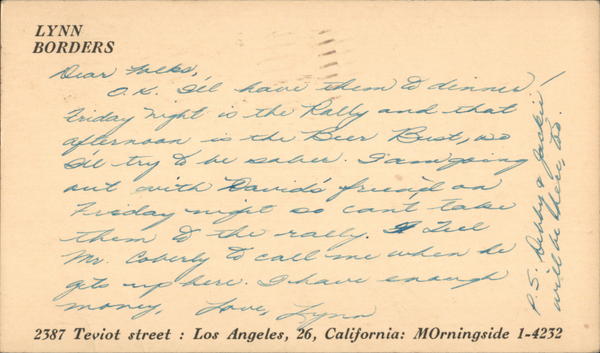 LYNN
BORDERS
Dear Folks,
O.K. I'll have them to dinner!
Friday night is the Rally and that
afternoon is the Beer Bust, so
I'll try to be sober. I am going
out with David's friend on
Friday night so can't take
them to the rally. Tell
Mr. Coberly to call me when he
gets up here. I have enough
money. Love, Lynn
P.S. Debby & Jackie
will be there, too.
2387 Teviot street : Los Angeles, 26, California: MOrningside 1-4232